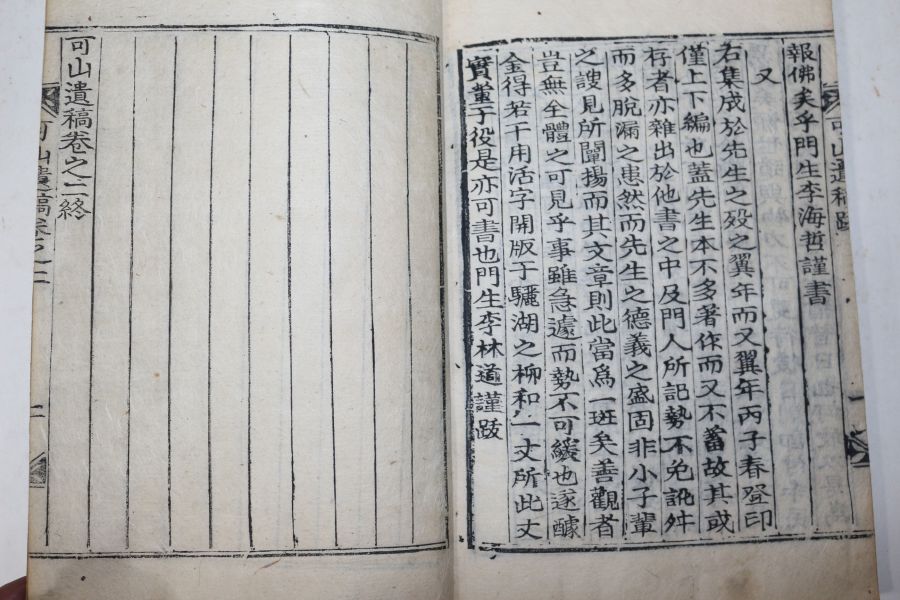 可山遺稿跋
一
報佛矣乎門生李海哲謹書
又
右集成於先生之歿之翼年而又翼年丙子春登印
僅上下編也蓋先生本不多著作而又不蓄故其或
存者亦雜出於他書之中及門人所記勢不免訛舛
而多脫漏之患然而先生之德義之盛固非小子輩
之謏見所闡揚而其文章則此當爲一班矣善觀者
豈無全體之可見乎事雖急遽而勢不可緩也遂醵
金得若干用活字開版于驪湖之柳和一丈所此丈
實董于役是亦可書也門生李林謹跋
可山遺稿卷之二終
可山遺稿卷之二